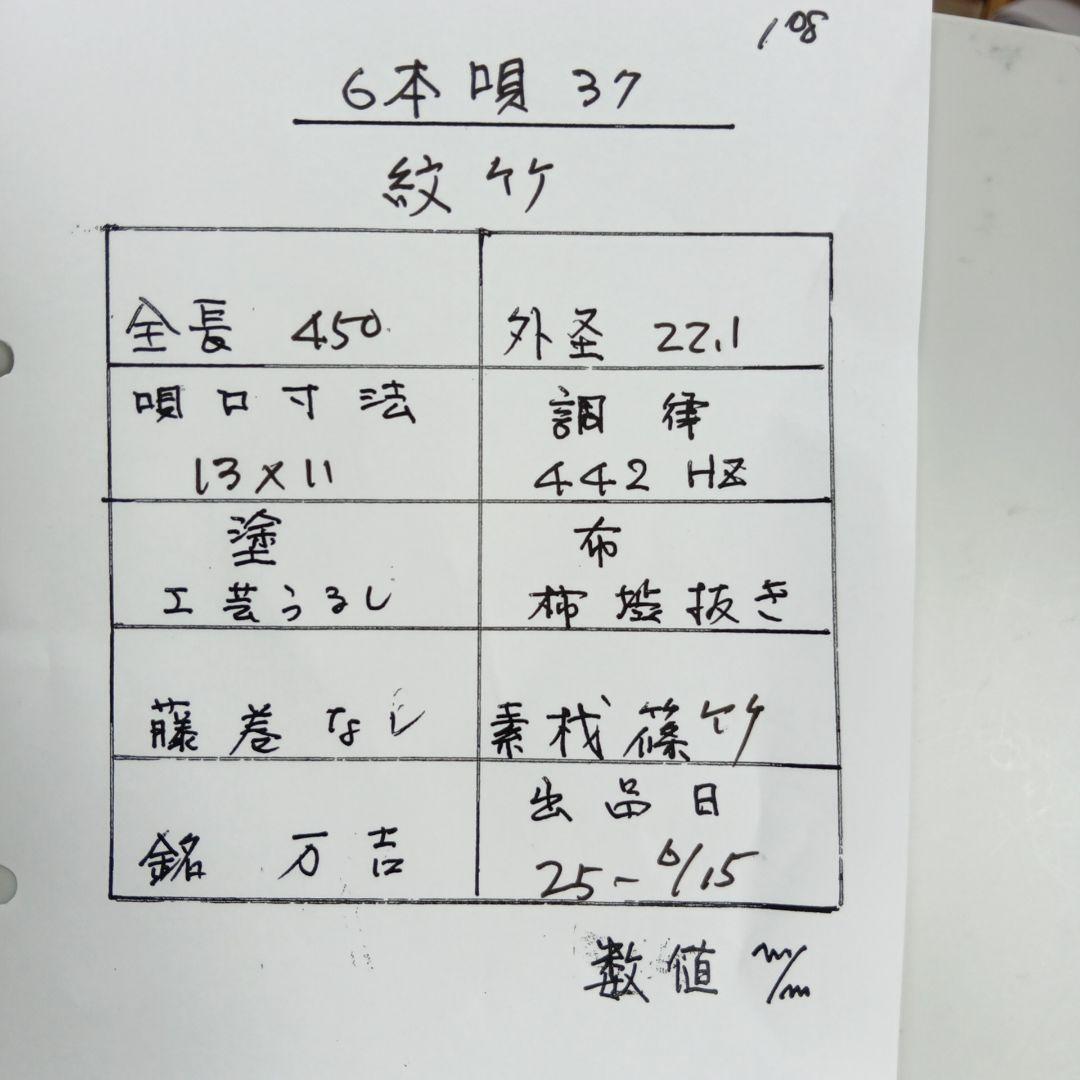 108
6本唄 37
紋竹
全長 450
外圣 22.1
唄口寸法
13×11
調律
442 HZ
塗
工芸うるし
布
柿澁抜き
藤巻なし
素材篠竹
銘 万吉
出品日
25-6/15
数値 m/m